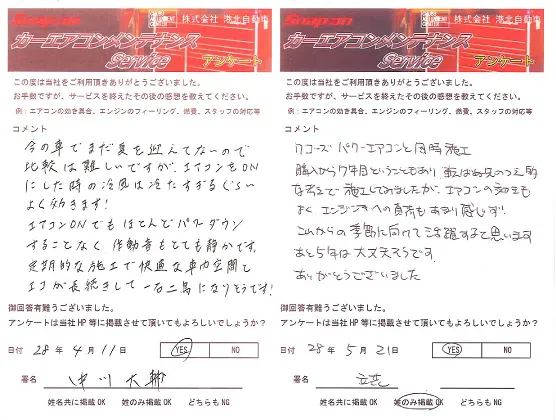 Snap-on
株式会社 港北自動車
カーエアコンメンテナンス
Service
アンケート
この度は当社をご利用頂きありがとうございました。
お手数ですが、サービスを終えたその後の感想を教えてください。
例：エアコンの効き具合、エンジンのフィーリング、燃費、スタッフの対応等
コメント
今の車でまだ夏を迎えてないので
比較は難しいですが、エアコンをON
にした時の冷風は冷たすぎるぐらい
よく効きます!
エアコンONでもほとんどパワーダウン
することなく作動音もとても静かです。
定期的な施工で快適な車内空間と
エコが長続きして一石二鳥になりそうです!
御回答有難うございました。
アンケートは当社HP等に掲載させて頂いてもよろしいでしょうか？
日付 28 年 4 月 11 日 YES NO
署名 中川 大輔
姓名共に掲載OK 姓のみ掲載OK どちらもNG
Snap-on
株式会社 港北自動車
カーエアコンメンテナンス
Service
アンケート
この度は当社をご利用頂きありがとうございました。
お手数ですが、サービスを終えたその後の感想を教えてください。
例：エアコンの効き具合、エンジンのフィーリング、燃費、スタッフの対応等
コメント
ワコーズパワーエアコンと同時施工
購入から7年目ということもあり
施工してみましたが、エアコンの効きも
よくエンジンへの負荷もあまり感じず!
これからの季節に向けて活躍すると思います
あと5年は大丈夫そうです。
ありがとうございました
御回答有難うございました。
アンケートは当社HP等に掲載させて頂いてもよろしいでしょうか？
日付 28 年 5 月 21 日 YES NO
署名
姓名共に掲載OK 姓のみ掲載OK どちらもNG